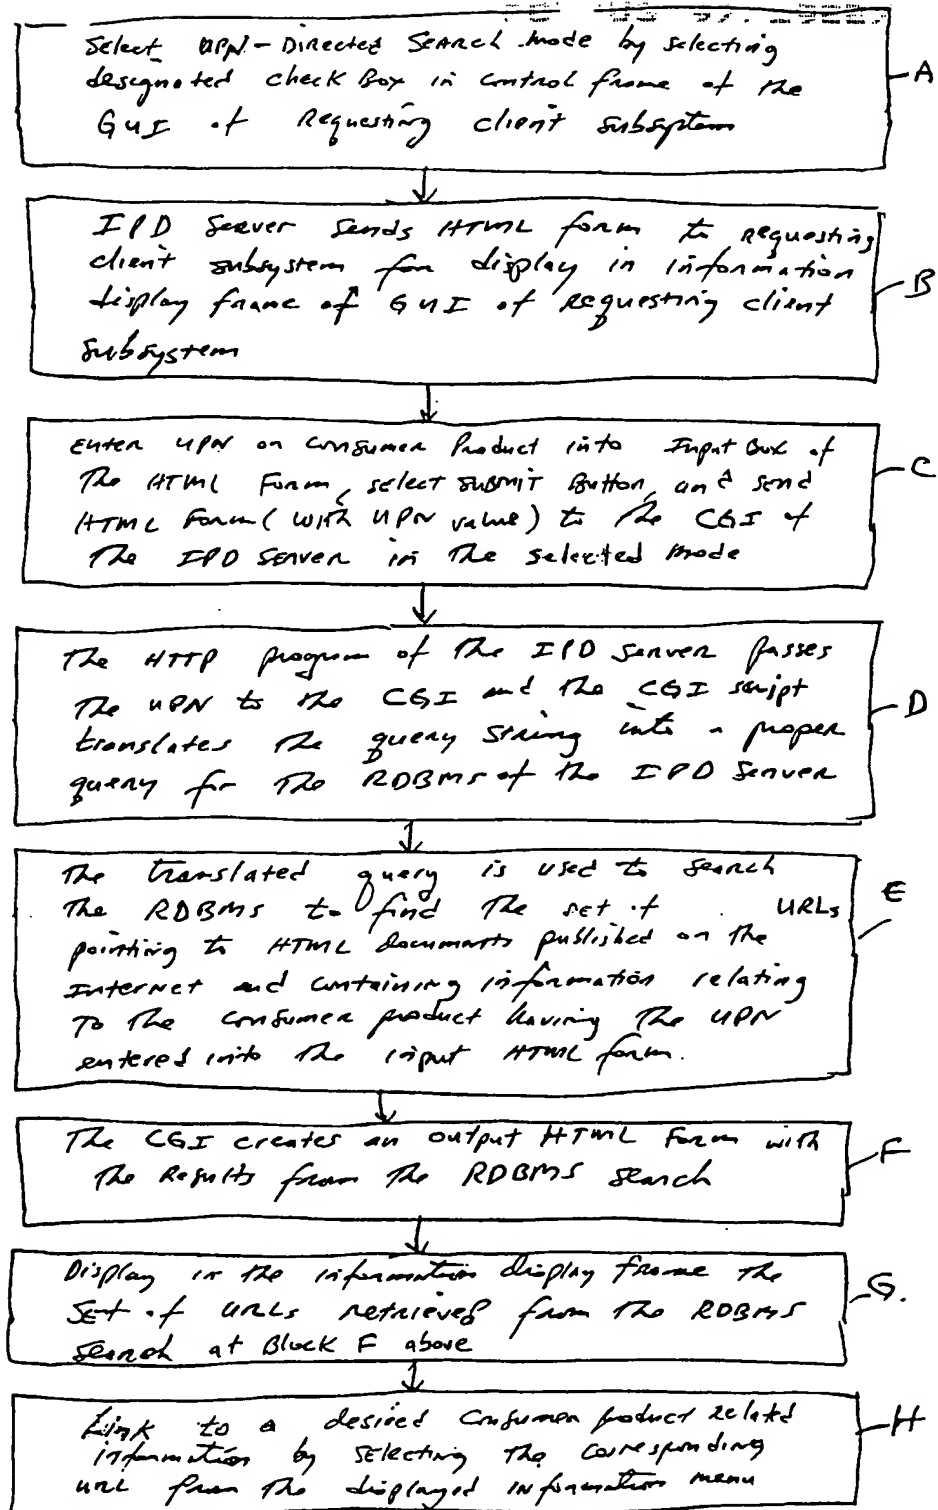 Select UPN-Directed Search mode by selecting
designated check Box in control frame of the
GUI of Requesting client subsystem
A
IPD Server sends HTML form to requesting
client subsystem for display in information
display frame of GUI of requesting client
subsystem
B
Enter UPN on consumer Product into Input Box of
The HTML Form, select submit Button, and send
HTML Form (with UPN value) to the CGI of
The IPD Server in the selected mode
C
The HTTP program of the IPD Server passes
The UPN to the CGI and the CGI script
translates the query string into a proper
query for the RDBMS of the IPD Server
D
The translated query is used to search
The RDBMS to find the set of URLs
pointing to HTML documents published on the
Internet and containing information relating
To the consumer product having the UPN
entered into the input HTML form.
E
The CGI creates an output HTML Form with
The Results from the RDBMS search
F
Display in the information display frame the
Set of URLs retrieved from the RDBMS
search at Block F above
G.
Link to a desired consumer product related
information by selecting the corresponding
URL from the displayed information menu
H